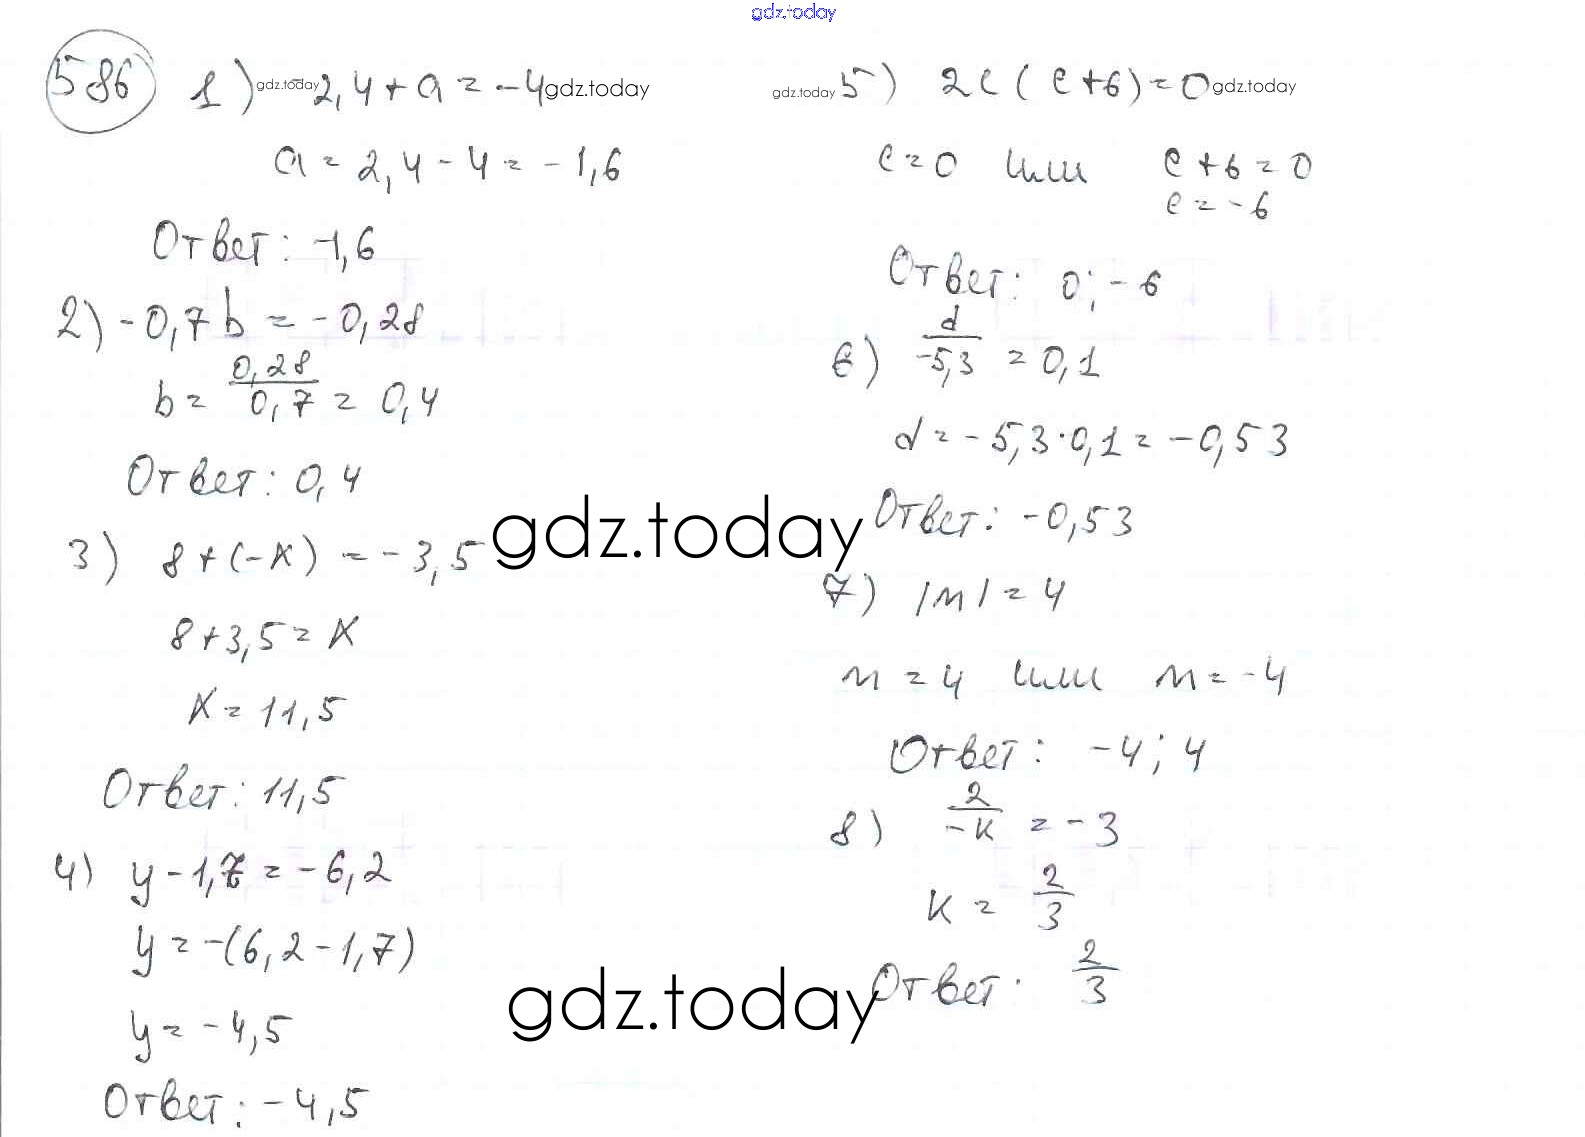 gdz.today
586 1) gdz.today -2,4 + a = -4 gdz.today
a = 2,4 - 4 = -1,6
Ответ: -1,6
2) -0,7b = -0,28
b = 0,28/0,7 = 0,4
Ответ: 0,4
3) 8 + (-x) = -3,5
8 + 3,5 = x
x = 11,5
Ответ: 11,5
4) y - 1,7 = -6,2
y = -(6,2 - 1,7)
y = -4,5
Ответ: -4,5
gdz.today
gdz.today
gdz.today 5) 2c(c+6) = 0 gdz.today
c = 0 или c + 6 = 0
c = -6
Ответ: 0; -6
6) d/-5,3 = 0,1
d = -5,3 · 0,1 = -0,53
Ответ: -0,53
7) |m| = 4
m = 4 или m = -4
Ответ: -4; 4
8) 2/-k = -3
k = 2/3
Ответ: 2/3